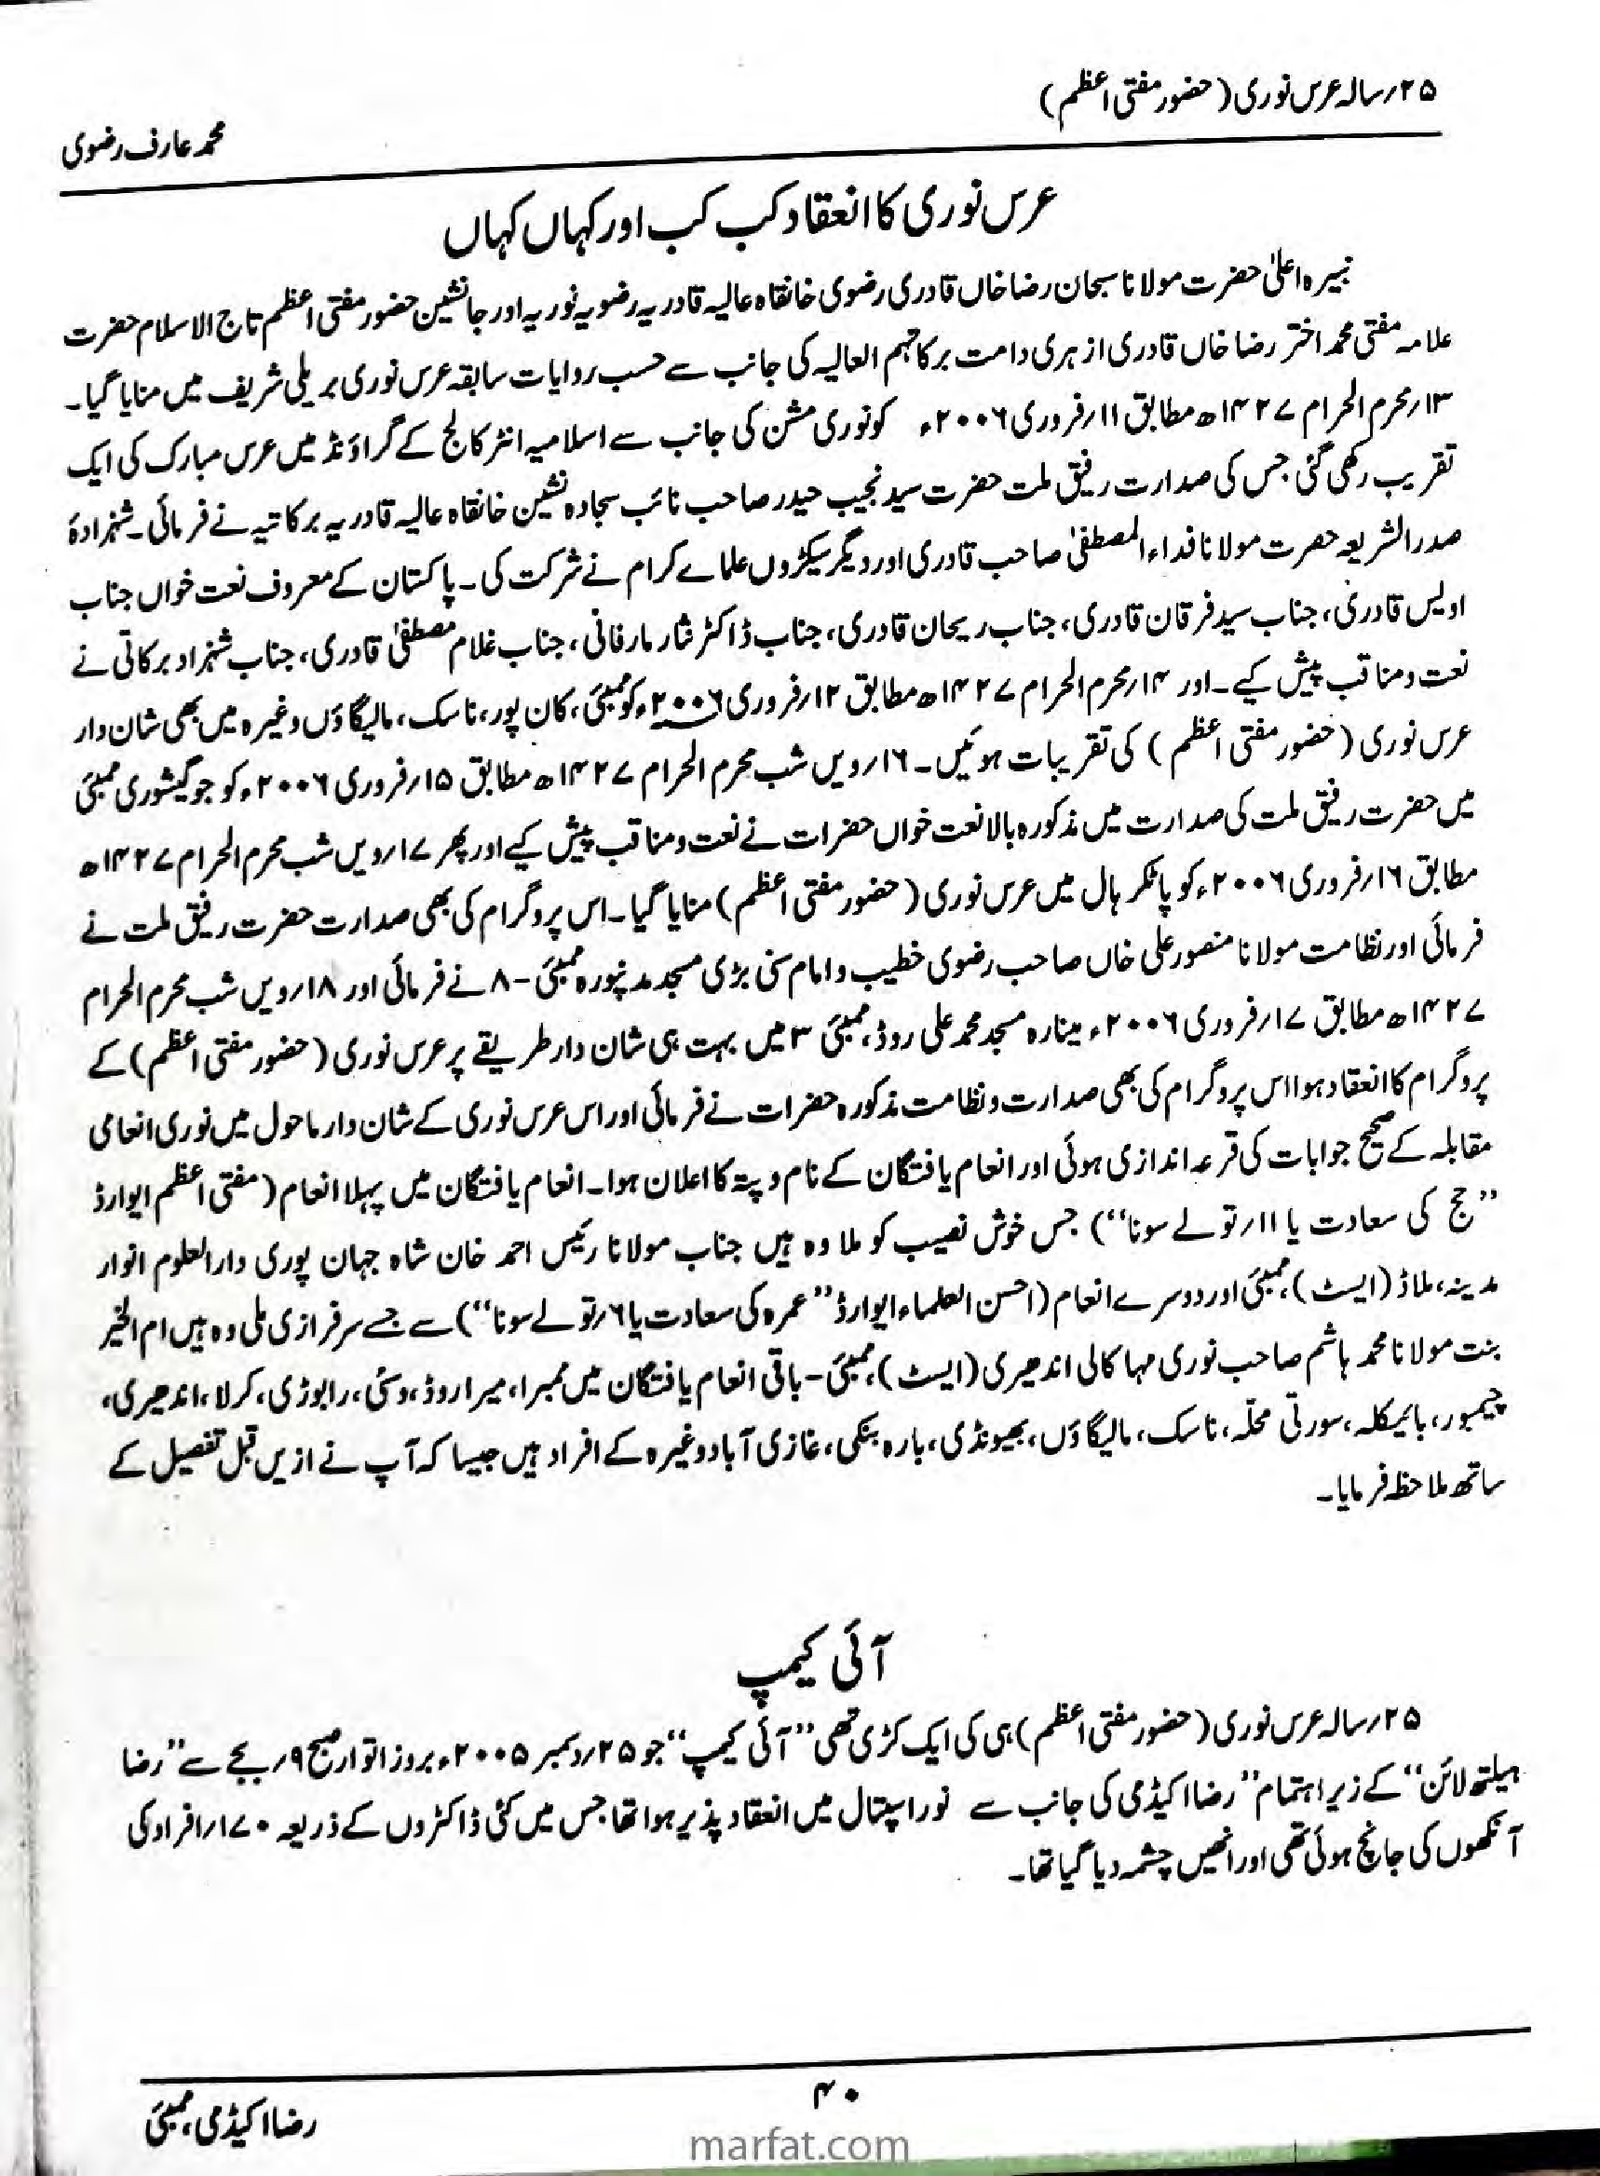 ۲۵؍سالہ عرس نوری (حضور مفتی اعظم)
محمد عارف رضوی
عرس نوری کا انعقاد کب کب اور کہاں کہاں
نبیرہ اعلیٰ حضرت مولانا سبحان رضا خاں قادری رضوی خانقاہ عالیہ قادریہ رضویہ نوریہ اور جانشین حضور مفتی اعظم تاج الاسلام حضرت
علامہ مفتی محمد اختر رضا خاں قادری ازہری دامت برکاتہم العالیہ کی جانب سے حسب روایات سابقہ عرس نوری بریلی شریف میں منایا گیا۔
۱۳؍محرم الحرام ۱۴۲۷ھ مطابق ۱۱؍فروری ۲۰۰۶ء کو نوری مشن کی جانب سے اسلامیہ انٹر کالج کے گراؤنڈ میں عرس مبارک کی ایک
تقریب رکھی گئی جس کی صدارت رفیق ملت حضرت سید نجیب حیدر صاحب نائب سجادہ نشین خانقاہ عالیہ قادریہ برکاتیہ نے فرمائی۔ شہزادۂ
صدر الشریعہ حضرت مولانا فداء المصطفیٰ صاحب قادری اور دیگر سیکڑوں علماے کرام نے شرکت کی۔ پاکستان کے معروف نعت خواں جناب
اویس قادری، جناب سید فرقان قادری، جناب ریحان قادری، جناب ڈاکٹر نثار مارفانی، جناب غلام مصطفیٰ قادری، جناب شہزاد برکاتی نے
نعت و مناقب پیش کیے۔ اور ۱۴؍محرم الحرام ۱۴۲۷ھ مطابق ۱۲؍فروری ۲۰۰۶ء کو ممبئی، کان پور، ناسک، مالیگاؤں وغیرہ میں بھی شان دار
عرس نوری (حضور مفتی اعظم) کی تقریبات ہوئیں۔ ۱۶؍ویں شب محرم الحرام ۱۴۲۷ھ مطابق ۱۵؍فروری ۲۰۰۶ء کو جوگیشوری ممبئی
میں حضرت رفیق ملت کی صدارت میں مذکورہ بالا نعت خواں حضرات نے نعت و مناقب پیش کیے اور پھر ۱۷؍ویں شب محرم الحرام ۱۴۲۷ھ
مطابق ۱۶؍فروری ۲۰۰۶ء کو پاٹکر ہال میں عرس نوری (حضور مفتی اعظم) منایا گیا۔ اس پروگرام کی بھی صدارت حضرت رفیق ملت نے
فرمائی اور نظامت مولانا منصور علی خاں صاحب رضوی خطیب و امام سنی بڑی مسجد مدنپورہ ممبئی-۸ نے فرمائی اور ۱۸؍ویں شب محرم الحرام
۱۴۲۷ھ مطابق ۱۷؍فروری ۲۰۰۶ء مینارہ مسجد محمد علی روڈ، ممبئی ۳ میں بہت ہی شان دار طریقے پر عرس نوری (حضور مفتی اعظم) کے
پروگرام کا انعقاد ہوا اس پروگرام کی بھی صدارت و نظامت مذکورہ حضرات نے فرمائی اور اس عرس نوری کے شان دار ماحول میں نوری انعامی
مقابلہ کے صحیح جوابات کی قرعہ اندازی ہوئی اور انعام یافتگان کے نام و پتہ کا اعلان ہوا۔ انعام یافتگان میں پہلا انعام (مفتی اعظم ایوارڈ
’’حج کی سعادت یا ۱۱؍تولے سونا‘‘) جس خوش نصیب کو ملا وہ ہیں جناب مولانا رئیس احمد خان شاہ جہان پوری دارالعلوم انوار
مدینہ، ملاڈ (ایسٹ)، ممبئی اور دوسرے انعام (احسن العلماء ایوارڈ ’’عمرہ کی سعادت یا ۶؍تولے سونا‘‘) سے جسے سرفرازی ملی وہ ہیں ام الخیر
بنت مولانا محمد ہاشم صاحب نوری مہاکالی اندھیری (ایسٹ)، ممبئی- باقی انعام یافتگان میں ممبرا، میرا روڈ، وسئی، رابوڑی، کرلا، اندھیری،
چیمبور، بائیکلہ، سورتی محلّہ، ناسک، مالیگاؤں، بھیونڈی، بارہ بنکی، غازی آباد وغیرہ کے افراد ہیں جیسا کہ آپ نے ازیں قبل تفصیل کے
ساتھ ملاحظہ فرمایا۔
آئی کیمپ
۲۵؍سالہ عرس نوری (حضور مفتی اعظم) ہی کی ایک کڑی تھی ’’آئی کیمپ‘‘ جو ۲۵؍دسمبر ۲۰۰۵ء بروز اتوار صبح ۹؍بجے سے ’’رضا
ہیلتھ لائن‘‘ کے زیر اہتمام ’’رضا اکیڈمی کی جانب سے نور اسپتال میں انعقاد پذیر ہوا تھا جس میں کئی ڈاکٹروں کے ذریعہ ۱۷۰؍افراد کی
آنکھوں کی جانچ ہوئی تھی اور انھیں چشمہ دیا گیا تھا۔
۴۰
رضا اکیڈمی، ممبئی
marfat.com